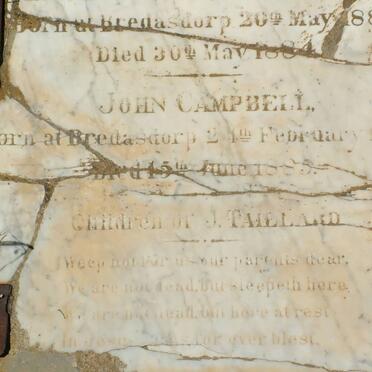 Born at Bredasdorp 26th May 188
Died 30th May 1884
JOHN CAMPBELL,
orn at Bredasdorp 24th February
Died 15th June 1885.
Children of J. TAILLARD
Weep not for us our parents dear,
We are not dead, but sleepeth here
We are not dead, but here at rest
In for ever blest.